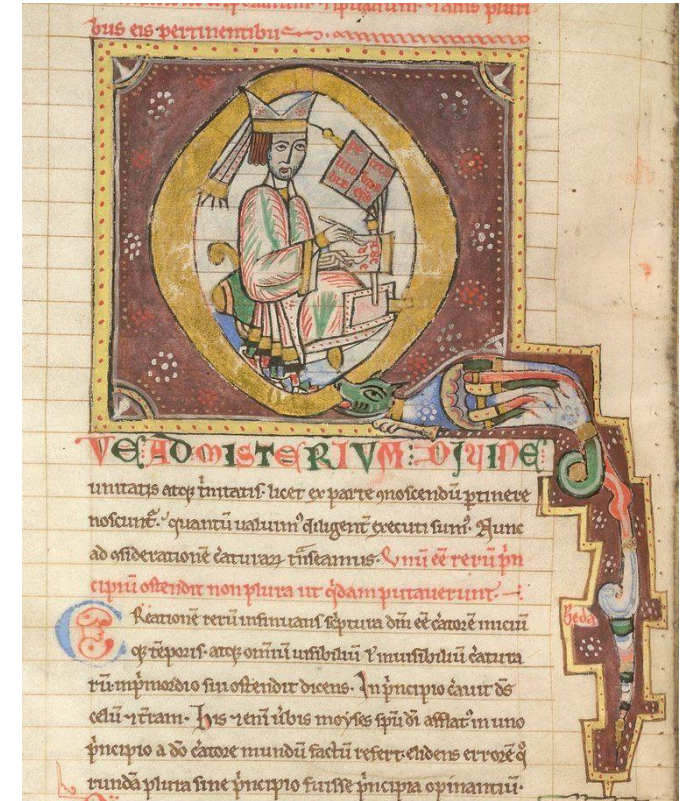 bus eis pertinentibus
VE AD MISTERIUM: DIVINE
unitatis atq; t̓nitatis· licet ex parte ꝯnoscendū p̱tinere
noscunt̄· quantū ualuim᷒ diligent̓ executi sum᷒· Nunc
ad ꝯsiderationē c̓aturaꝝ t̓nseamus· Vnū eē rerū p̓n
cipiū ostendit non plura ut q̓dam putauerunt·
CReationē rerū insinuans sc̓ptura dm̄ eē c̓atorē iniciū
q; tēporis· atq; omniū uisibiliū ⁊ inuisibiliū c̓atura
rū· in p̓mordio sui ostendit dicens· In p̓ncipio c̓auit ds̄
celū ⁊ t̓ram· His ⁊enī ūbis moyses sp̄u dī afflat᷒ in uno
p̓ncipio a dō c̓atore mundū factū refert· elidens errorē q̓
rundā plura sine p̓ncipio fuisse p̓ncipia opinantiū·
Beda